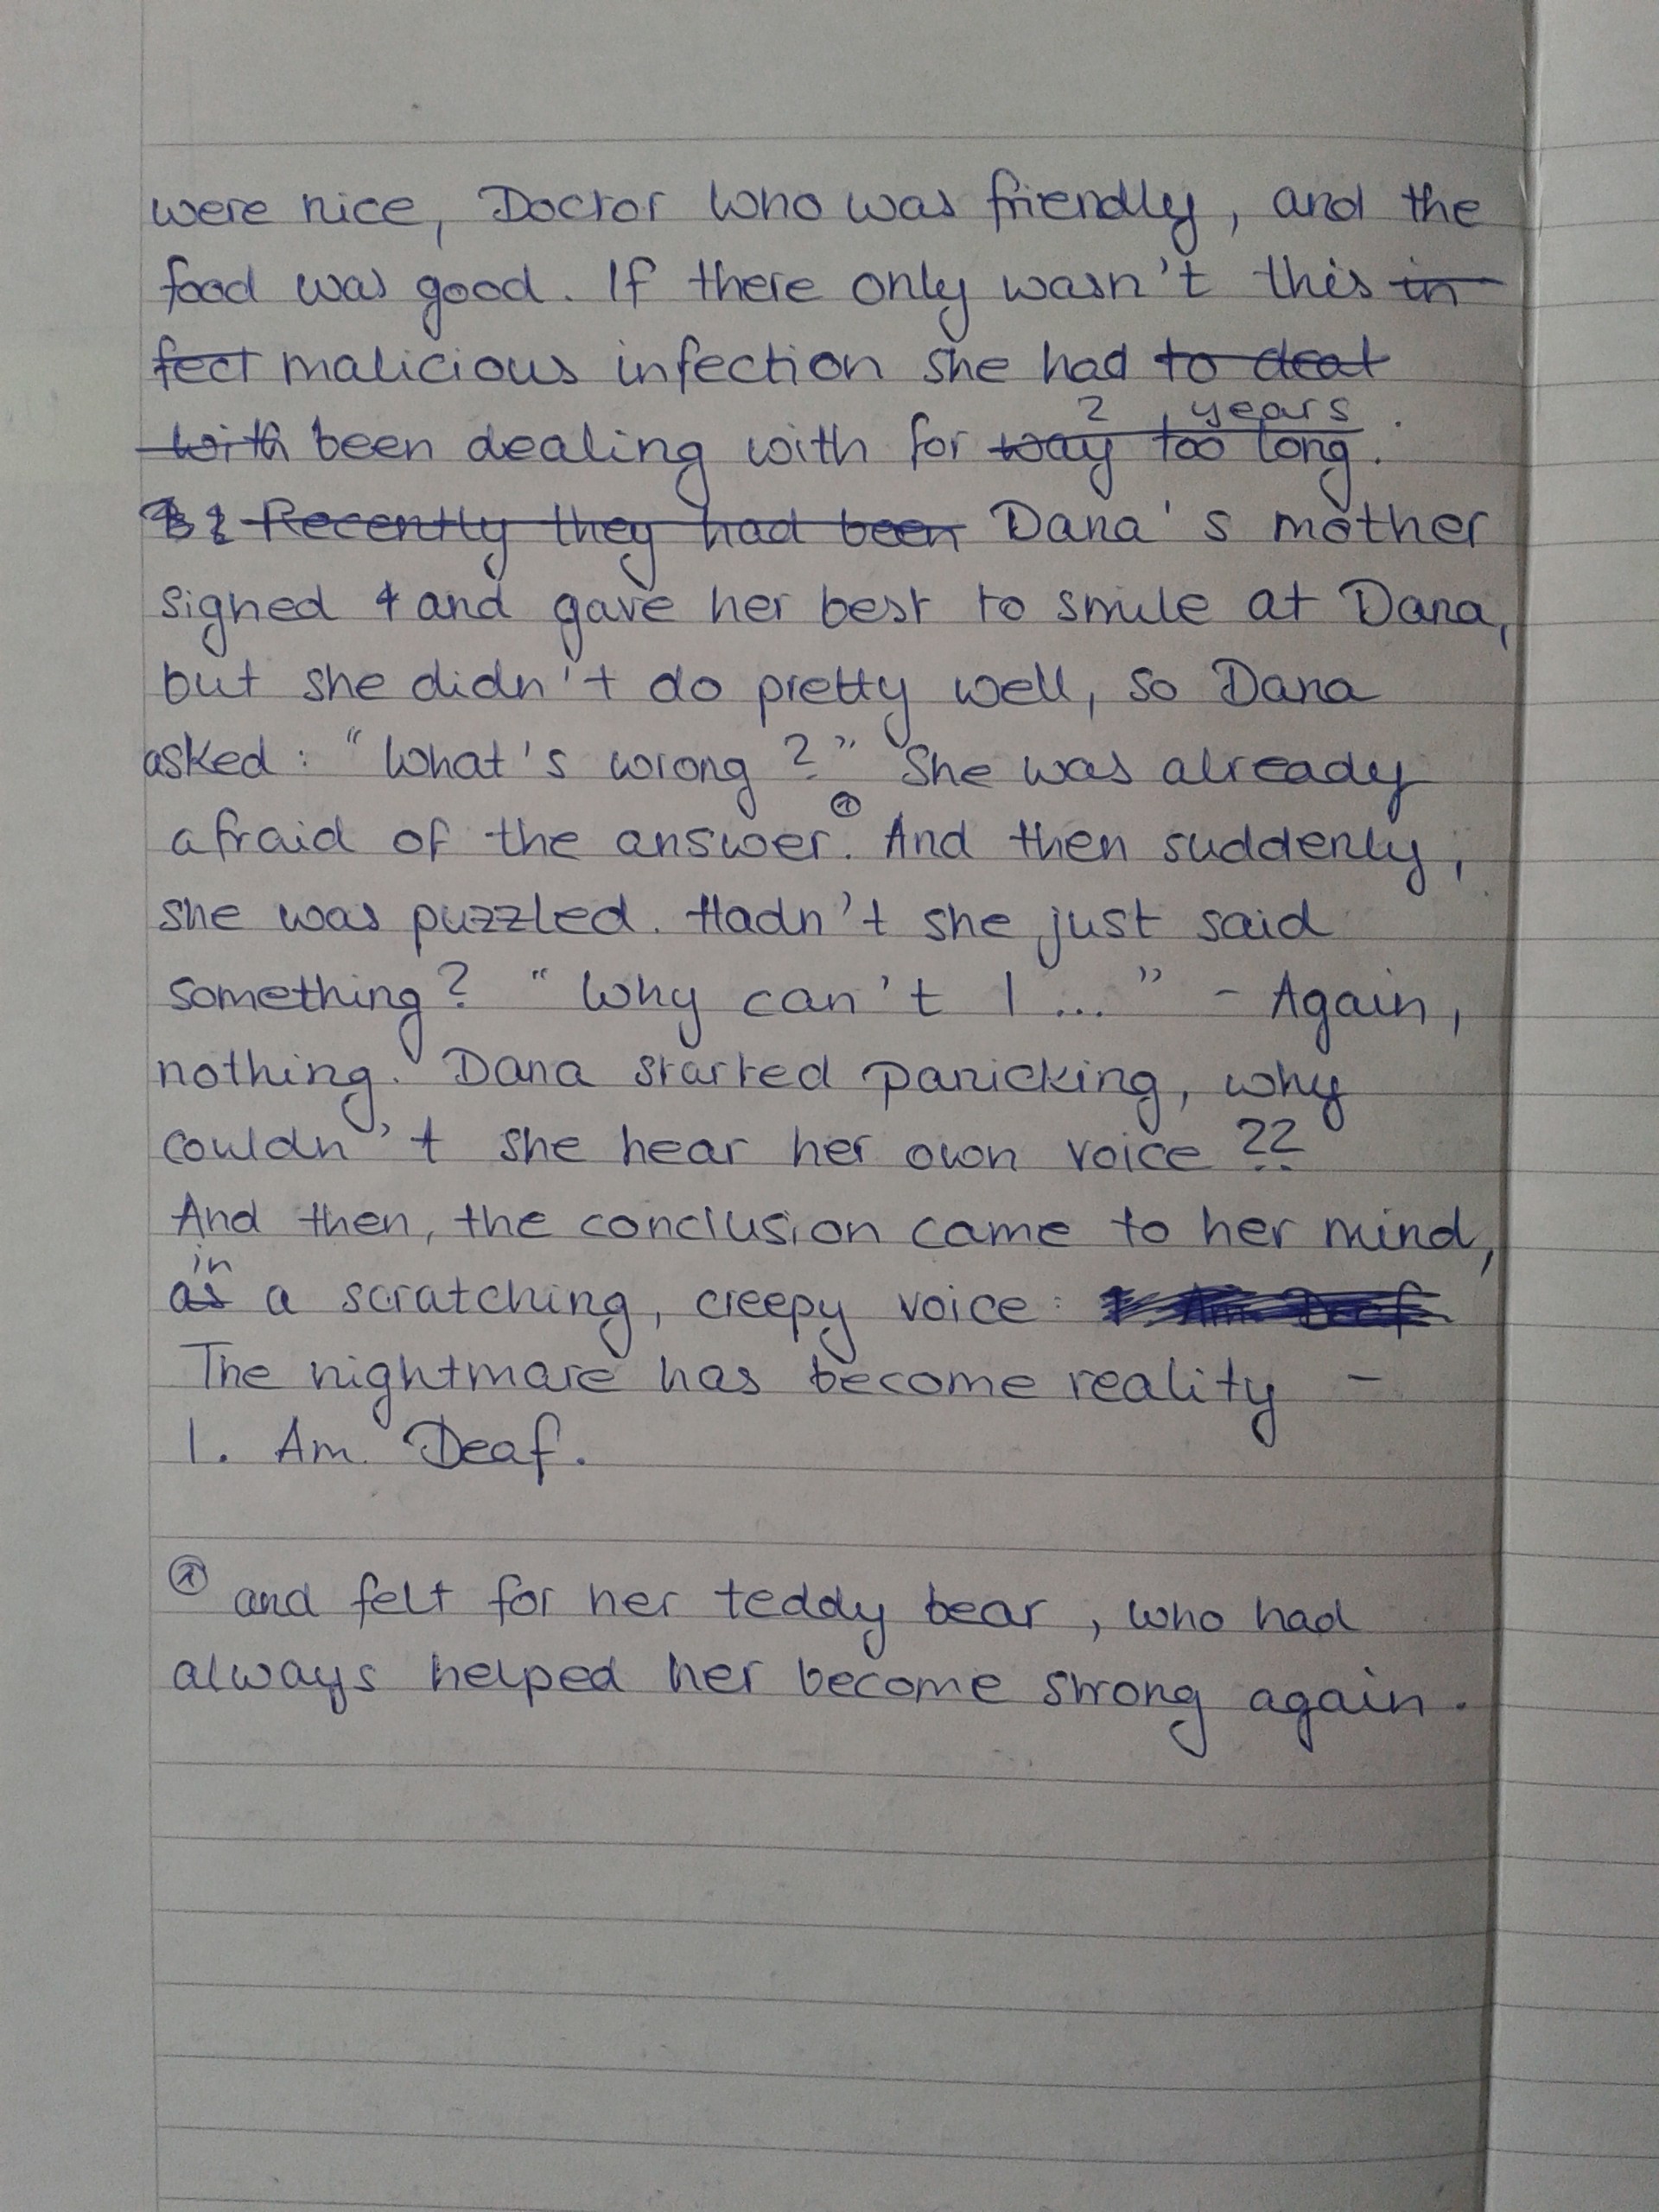 were nice, Doctor Who was friendly, and the
food was good. If there only wasn't this in
fect malicious infection she had to deal
with been dealing with for 2 years way too long.
Recently they had been Dana's mother
signed and gave her best to smile at Dana,
but she didn't do pretty well, so Dana
asked: "What's wrong?" She was already
afraid of the answer.① And then suddenly,
she was puzzled. Hadn't she just said
something? "Why can't I ..." - Again,
nothing. Dana started panicking, why
couldn't she hear her own voice??
And then, the conclusion came to her mind,
in
as a scratching, creepy voice: I Am Deaf
The nightmare has become reality -
I. Am. Deaf.
① and felt for her teddy bear, who had
always helped her become strong again.